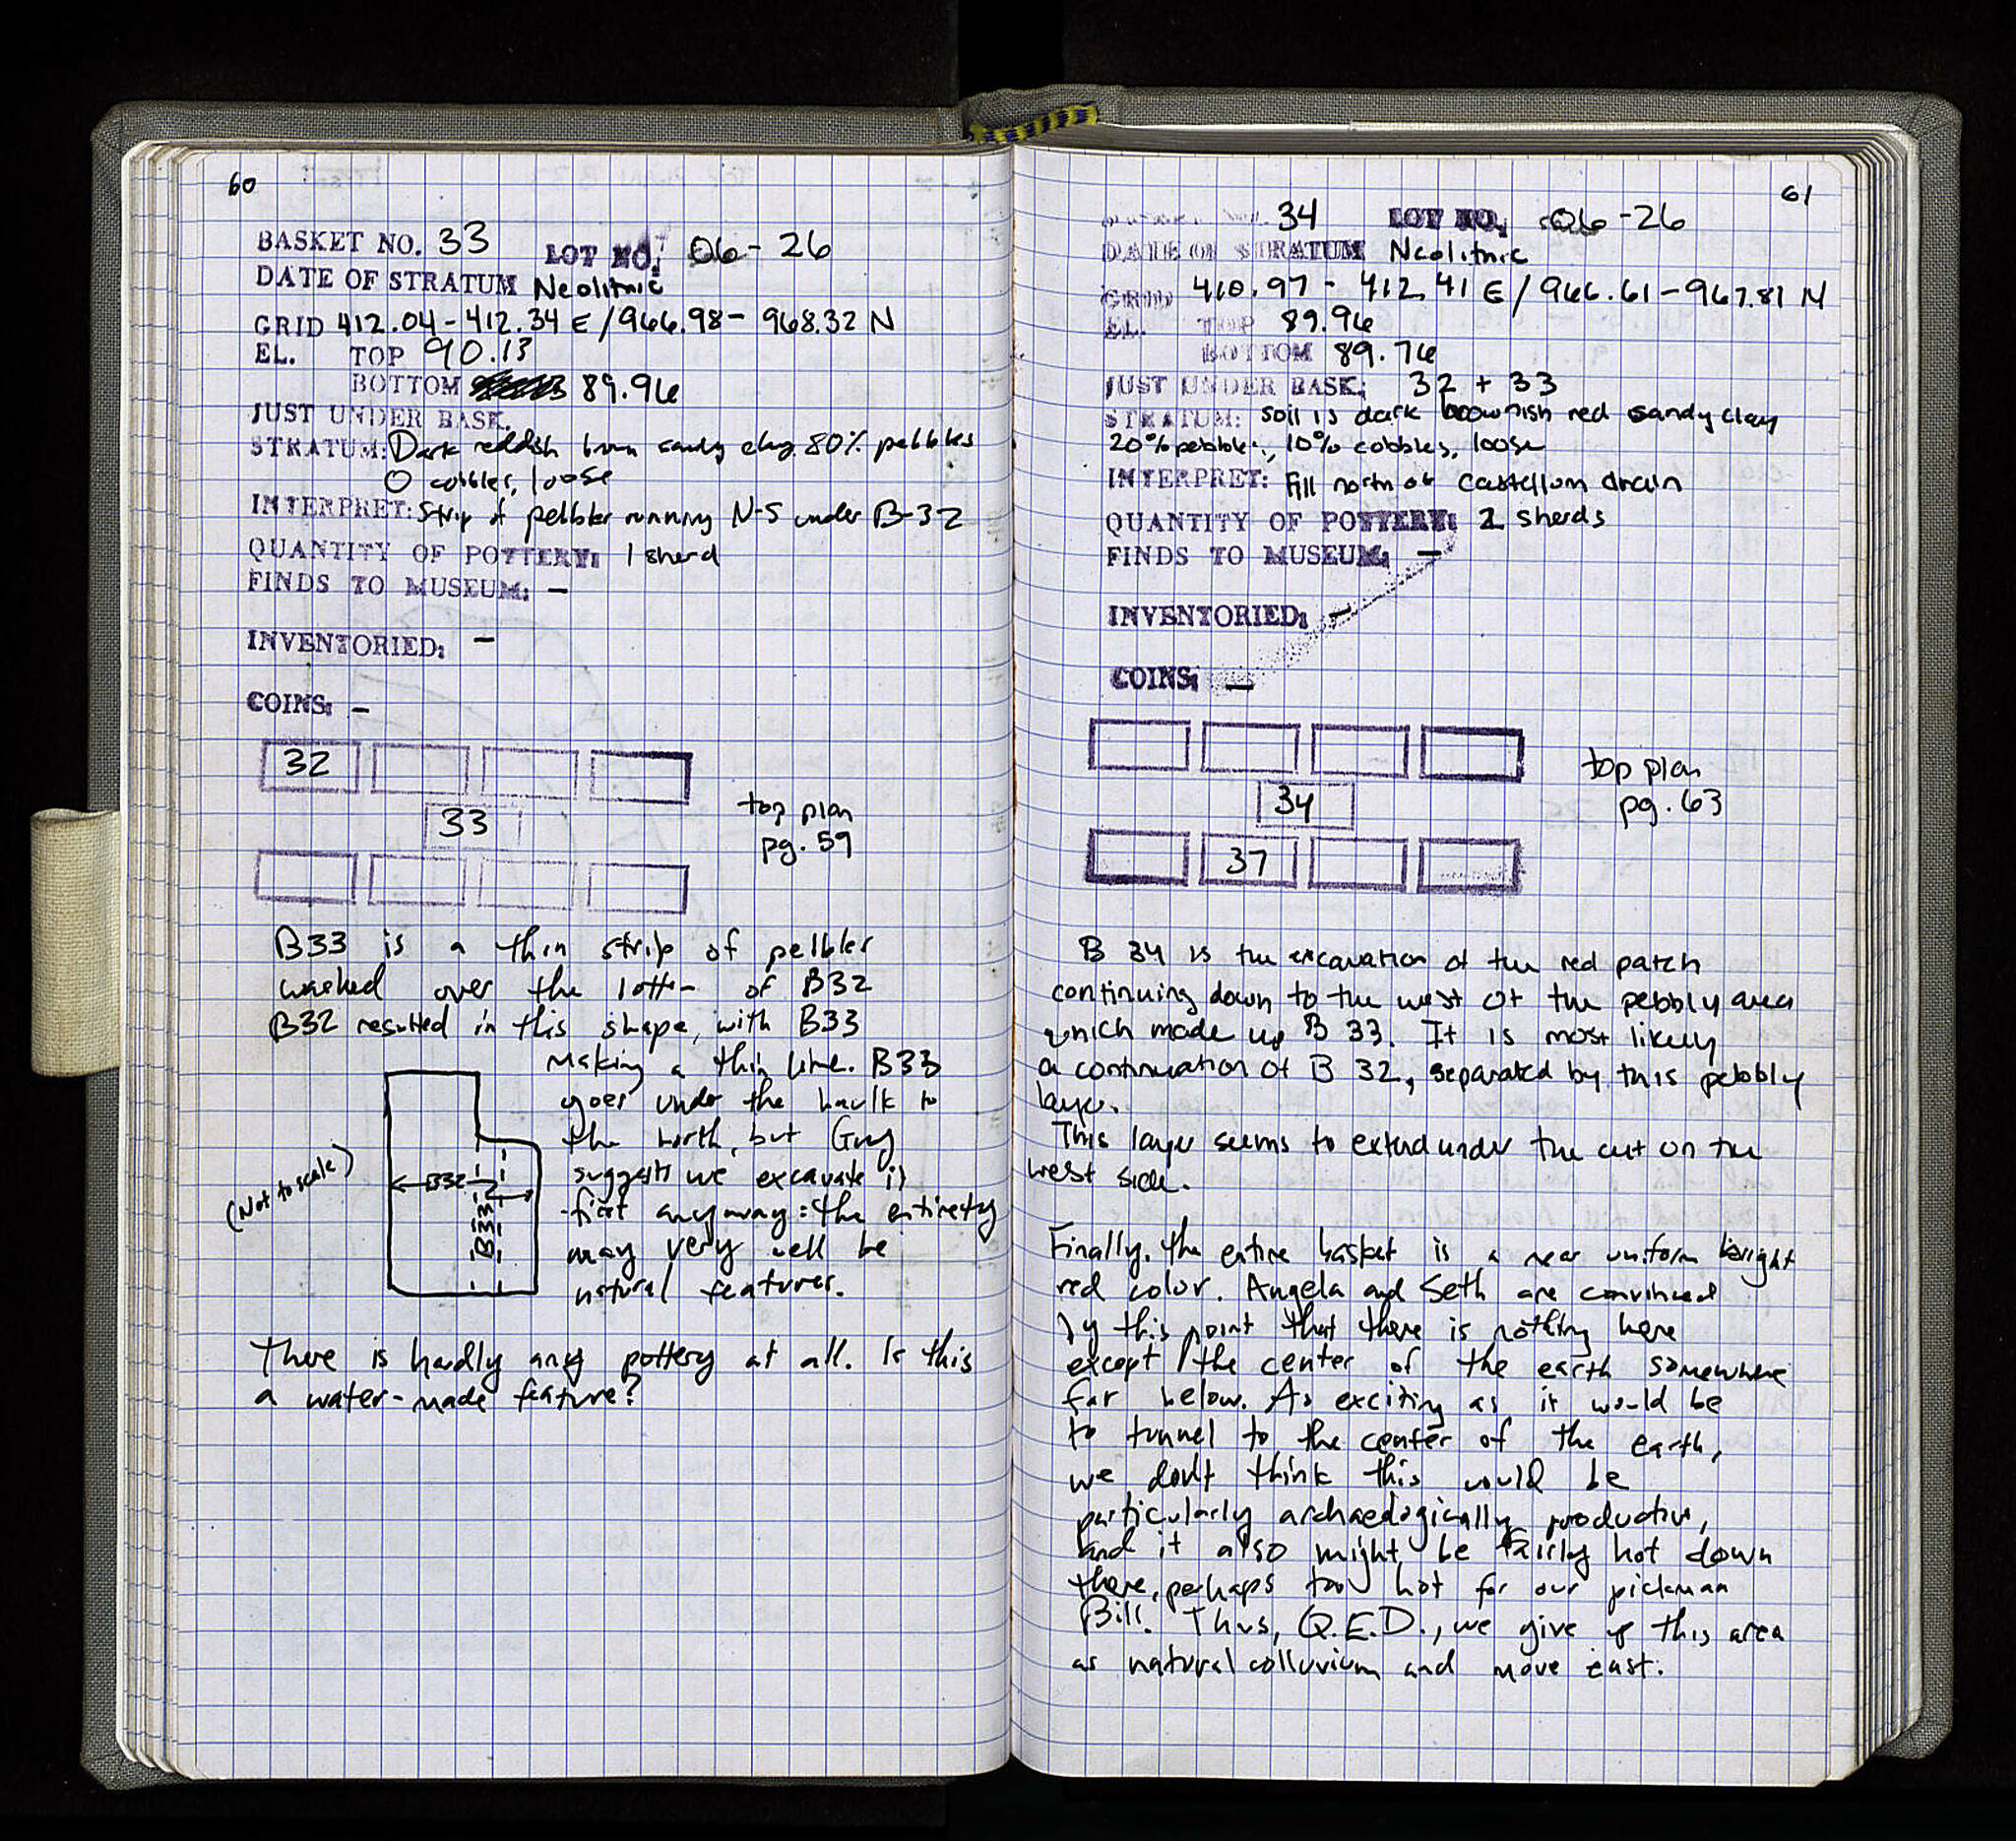 60
BASKET NO. 33 LOT NO. 06-26
DATE OF STRATUM Neolithic
GRID 412.04-412.34 E/966.98-968.32 N
EL. TOP 90.13
BOTTOM 89.96
JUST UNDER BASK.
STRATUM: Dark reddish brown sandy clay, 80% pebbles
0 cobbles, loose
INTERPRET: Strip of pebbles running N-S under B-32
QUANTITY OF POTTERY: 1 sherd
FINDS TO MUSEUM: -
INVENTORIED: -
COINS: -
32
33
top plan
pg. 59
B33 is a thin strip of pebbles
washed over the bottom of B32
B32 resulted in this shape, with B33
making a thin line. B33
goes under the baulk to
the north, but Guy
suggests we excavate it
first anyway: the entirety
may very well be
natural features.
(Not to scale)
B32
B33
There is hardly any pottery at all. Is this
a water-made feature?
61
34 LOT NO. 06-26
DATE OF STRATUM Neolithic
GRID 410.97 - 412.41 E/966.61-967.81 N
EL. TOP 89.96
BOTTOM 89.76
JUST UNDER BASK: 32 + 33
STRATUM: soil is dark brownish red sandy clay
20% pebbles, 10% cobbles, loose
INTERPRET: Fill north of Castellum drain
QUANTITY OF POTTERY: 2 sherds
FINDS TO MUSEUM: -
INVENTORIED: -
COINS: -
34
37
top plan
pg. 63
B 34 is the excavation of the red patch
continuing down to the west of the pebbly area
which made up B 33. It is most likely
a continuation of B 32, separated by this pebbly
layer.
This layer seems to extend under the cut on the
west side.
Finally, the entire basket is a near uniform bright
red color. Angela and Seth are convinced
by this point that there is nothing here
except the center of the earth somewhere
far below. As exciting as it would be
to tunnel to the center of the earth,
we don't think this would be
particularly archaeologically productive,
and it also might be fairly hot down
there, perhaps too hot for our pickman
Bill. Thus, Q.E.D., we give up this area
as natural colluvium and move east.